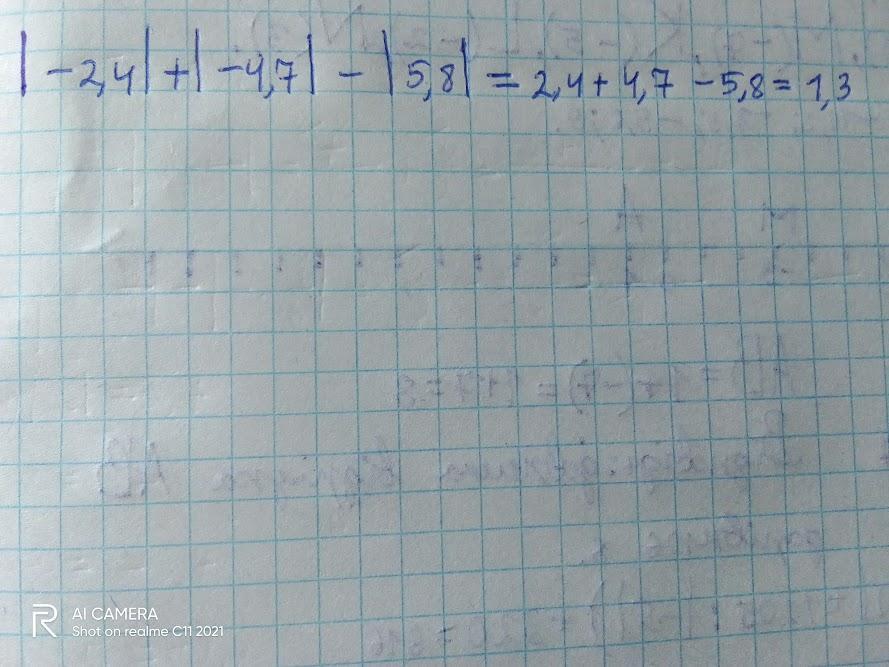 |-2,4| + |-4,7| - |5,8| = 2,4 + 4,7 - 5,8 = 1,3
AI CAMERA
Shot on realme C11 2021